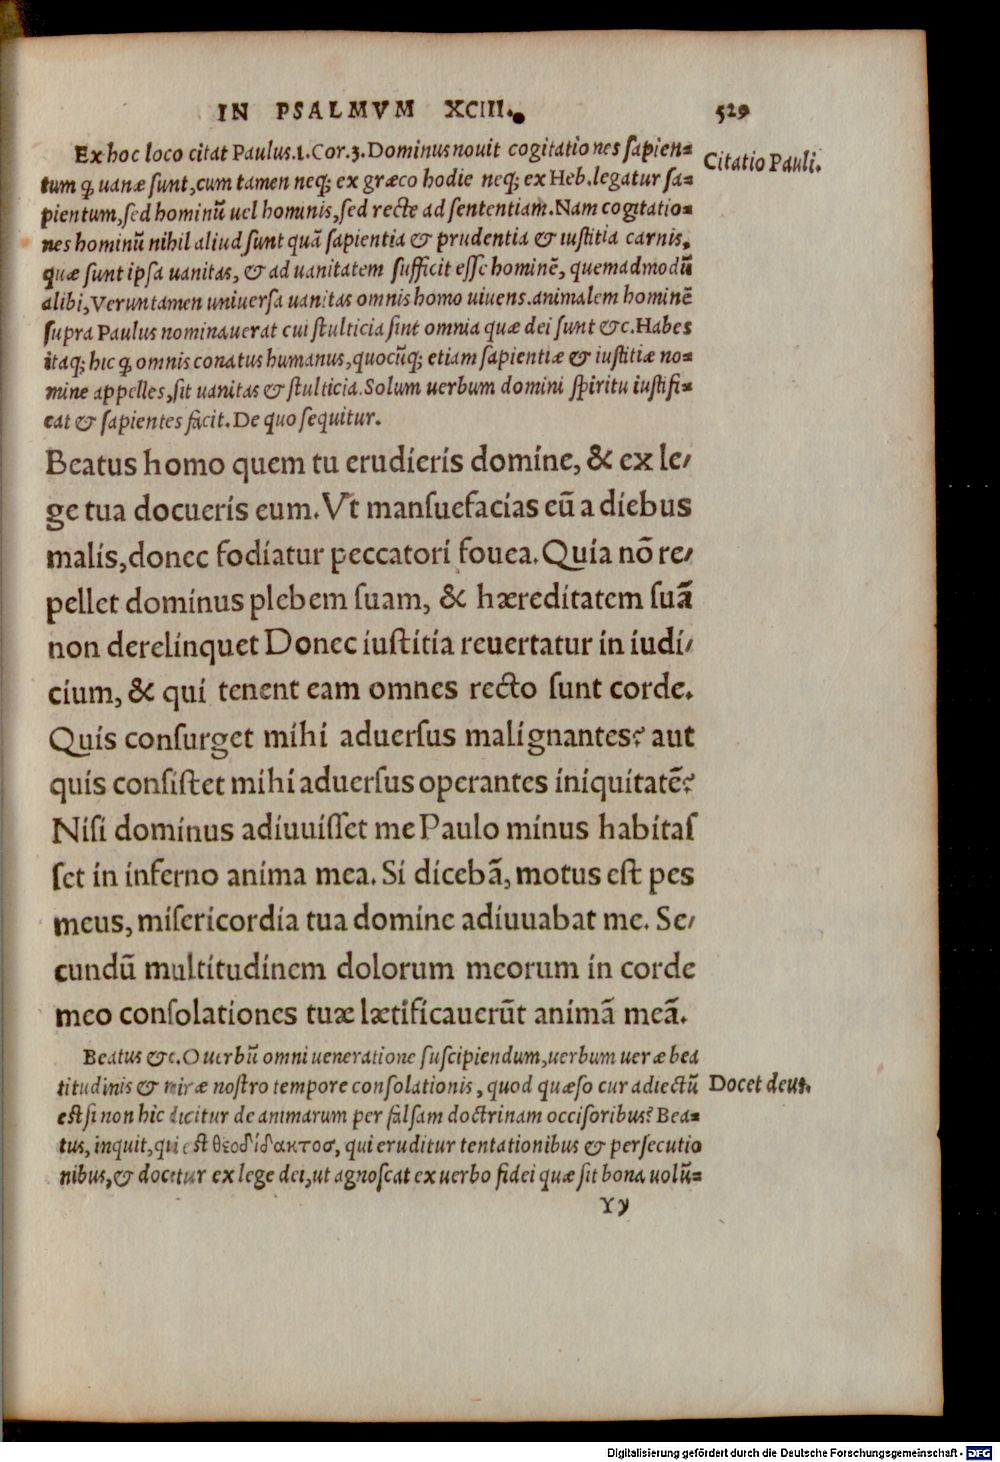 IN PSALMVM XCIII. 529
Ex hoc loco citat Paulus.1.Cor.3.Dominus nouit cogitationes sapien-
Citatio Pauli.
tum ꝙ uanæ sunt,cum tamen neq; ex græco hodie neq; ex Heb.legatur sa-
pientum,sed hominũ uel hominis,sed recte ad sententiam.Nam cogitatio-
nes hominũ nihil aliud sunt quã sapientia & prudentia & iustitia carnis,
quæ sunt ipsa uanitas, & ad uanitatem sufficit esse hominẽ, quemadmodũ
alibi,Veruntamen uniuersa uanitas omnis homo uiuens.animalem hominẽ
supra Paulus nominauerat cui stulticia sint omnia quæ dei sunt &c.Habes
itaq; hic ꝙ omnis conatus humanus,quocũq; etiam sapientiæ & iustitiæ no-
mine appelles,sit uanitas & stulticia.Solum uerbum domini spiritu iustifi-
cat & sapientes facit.De quo sequitur.
Beatus homo quem tu erudieris domine, & ex le/
ge tua docueris eum.Vt mansuefacias eũ a diebus
malis,donec fodiatur peccatori fouea.Quia nõ re/
pellet dominus plebem suam, & hæreditatem suã
non derelinquet Donec iustitia reuertatur in iudi/
cium, & qui tenent eam omnes recto sunt corde.
Quis consurget mihi aduersus malignantes? aut
quis consistet mihi aduersus operantes iniquitatẽ?
Nisi dominus adiuuisset me Paulo minus habitas
set in inferno anima mea. Si dicebã, motus est pes
meus, misericordia tua domine adiuuabat me. Se/
cundũ multitudinem dolorum meorum in corde
meo consolationes tuæ lætificauerũt animã meã.
Beatus &c.O uerbũ omni ueneratione suscipiendum,uerbum ueræ bea
titudinis & miræ nostro tempore consolationis, quod quæso cur adiectũ
Docet deus.
est si non hic dicitur de animarum per falsam doctrinam occisoribus? Bea-
tus, inquit, qui est θεοδίδακτοσ, qui eruditur tentationibus & persecutio
nibus,& docetur ex lege dei,ut agnoscat ex uerbo fidei quæ sit bona uolũ-
Yy
Digitalisierung gefördert durch die Deutsche Forschungsgemeinschaft - DFG